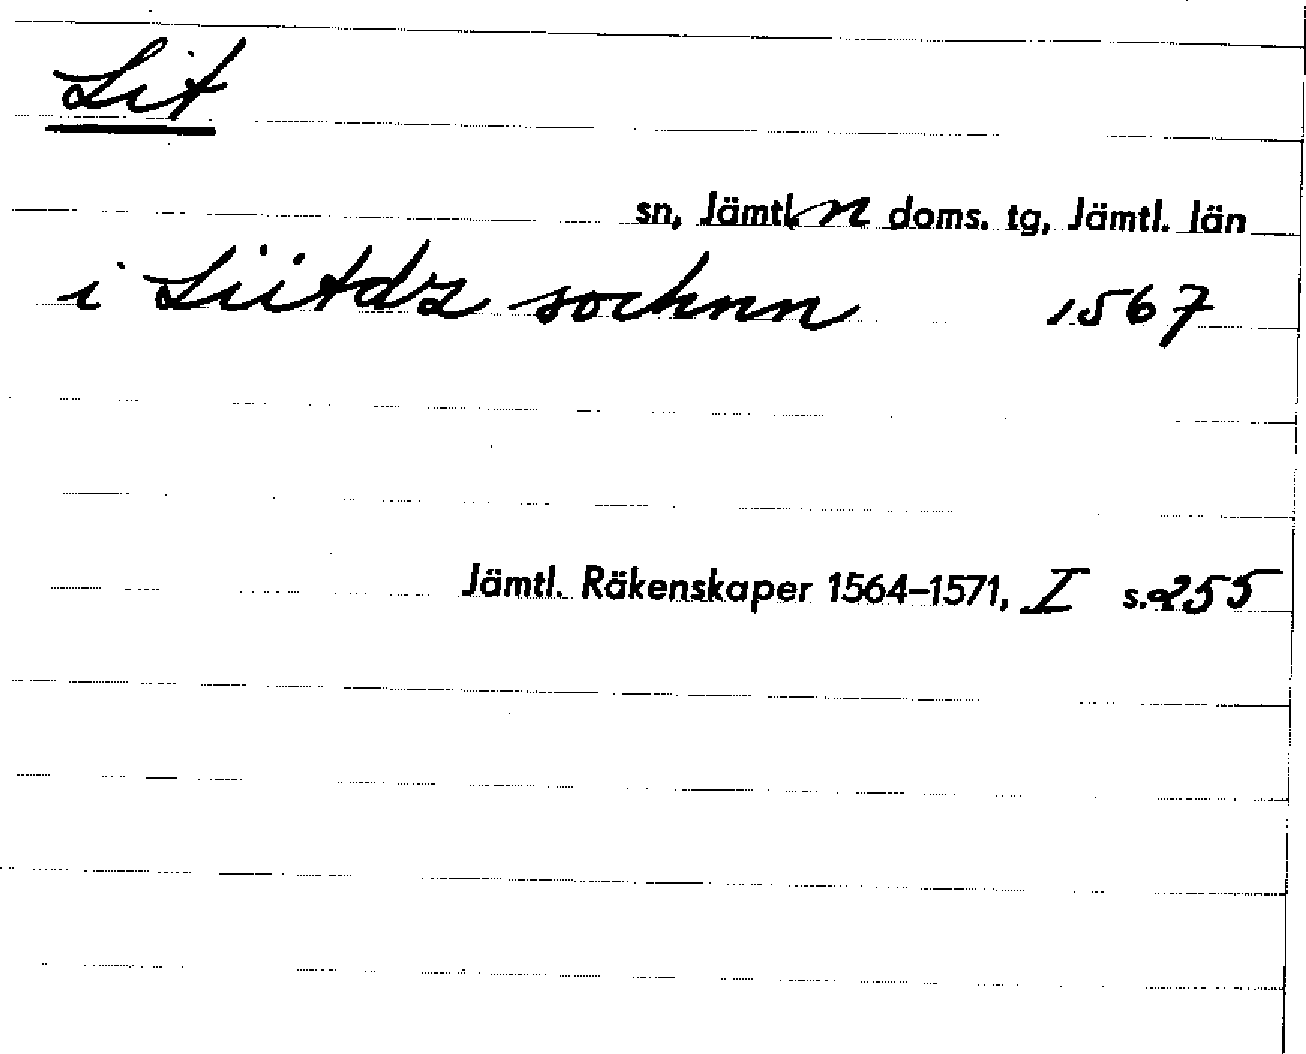 Lit
sn, Jämtl. n doms. tg, Jämtl. län
i Liitdz socknn 1567
Jämtl. Räkenskaper 1564–1571, I s. 255